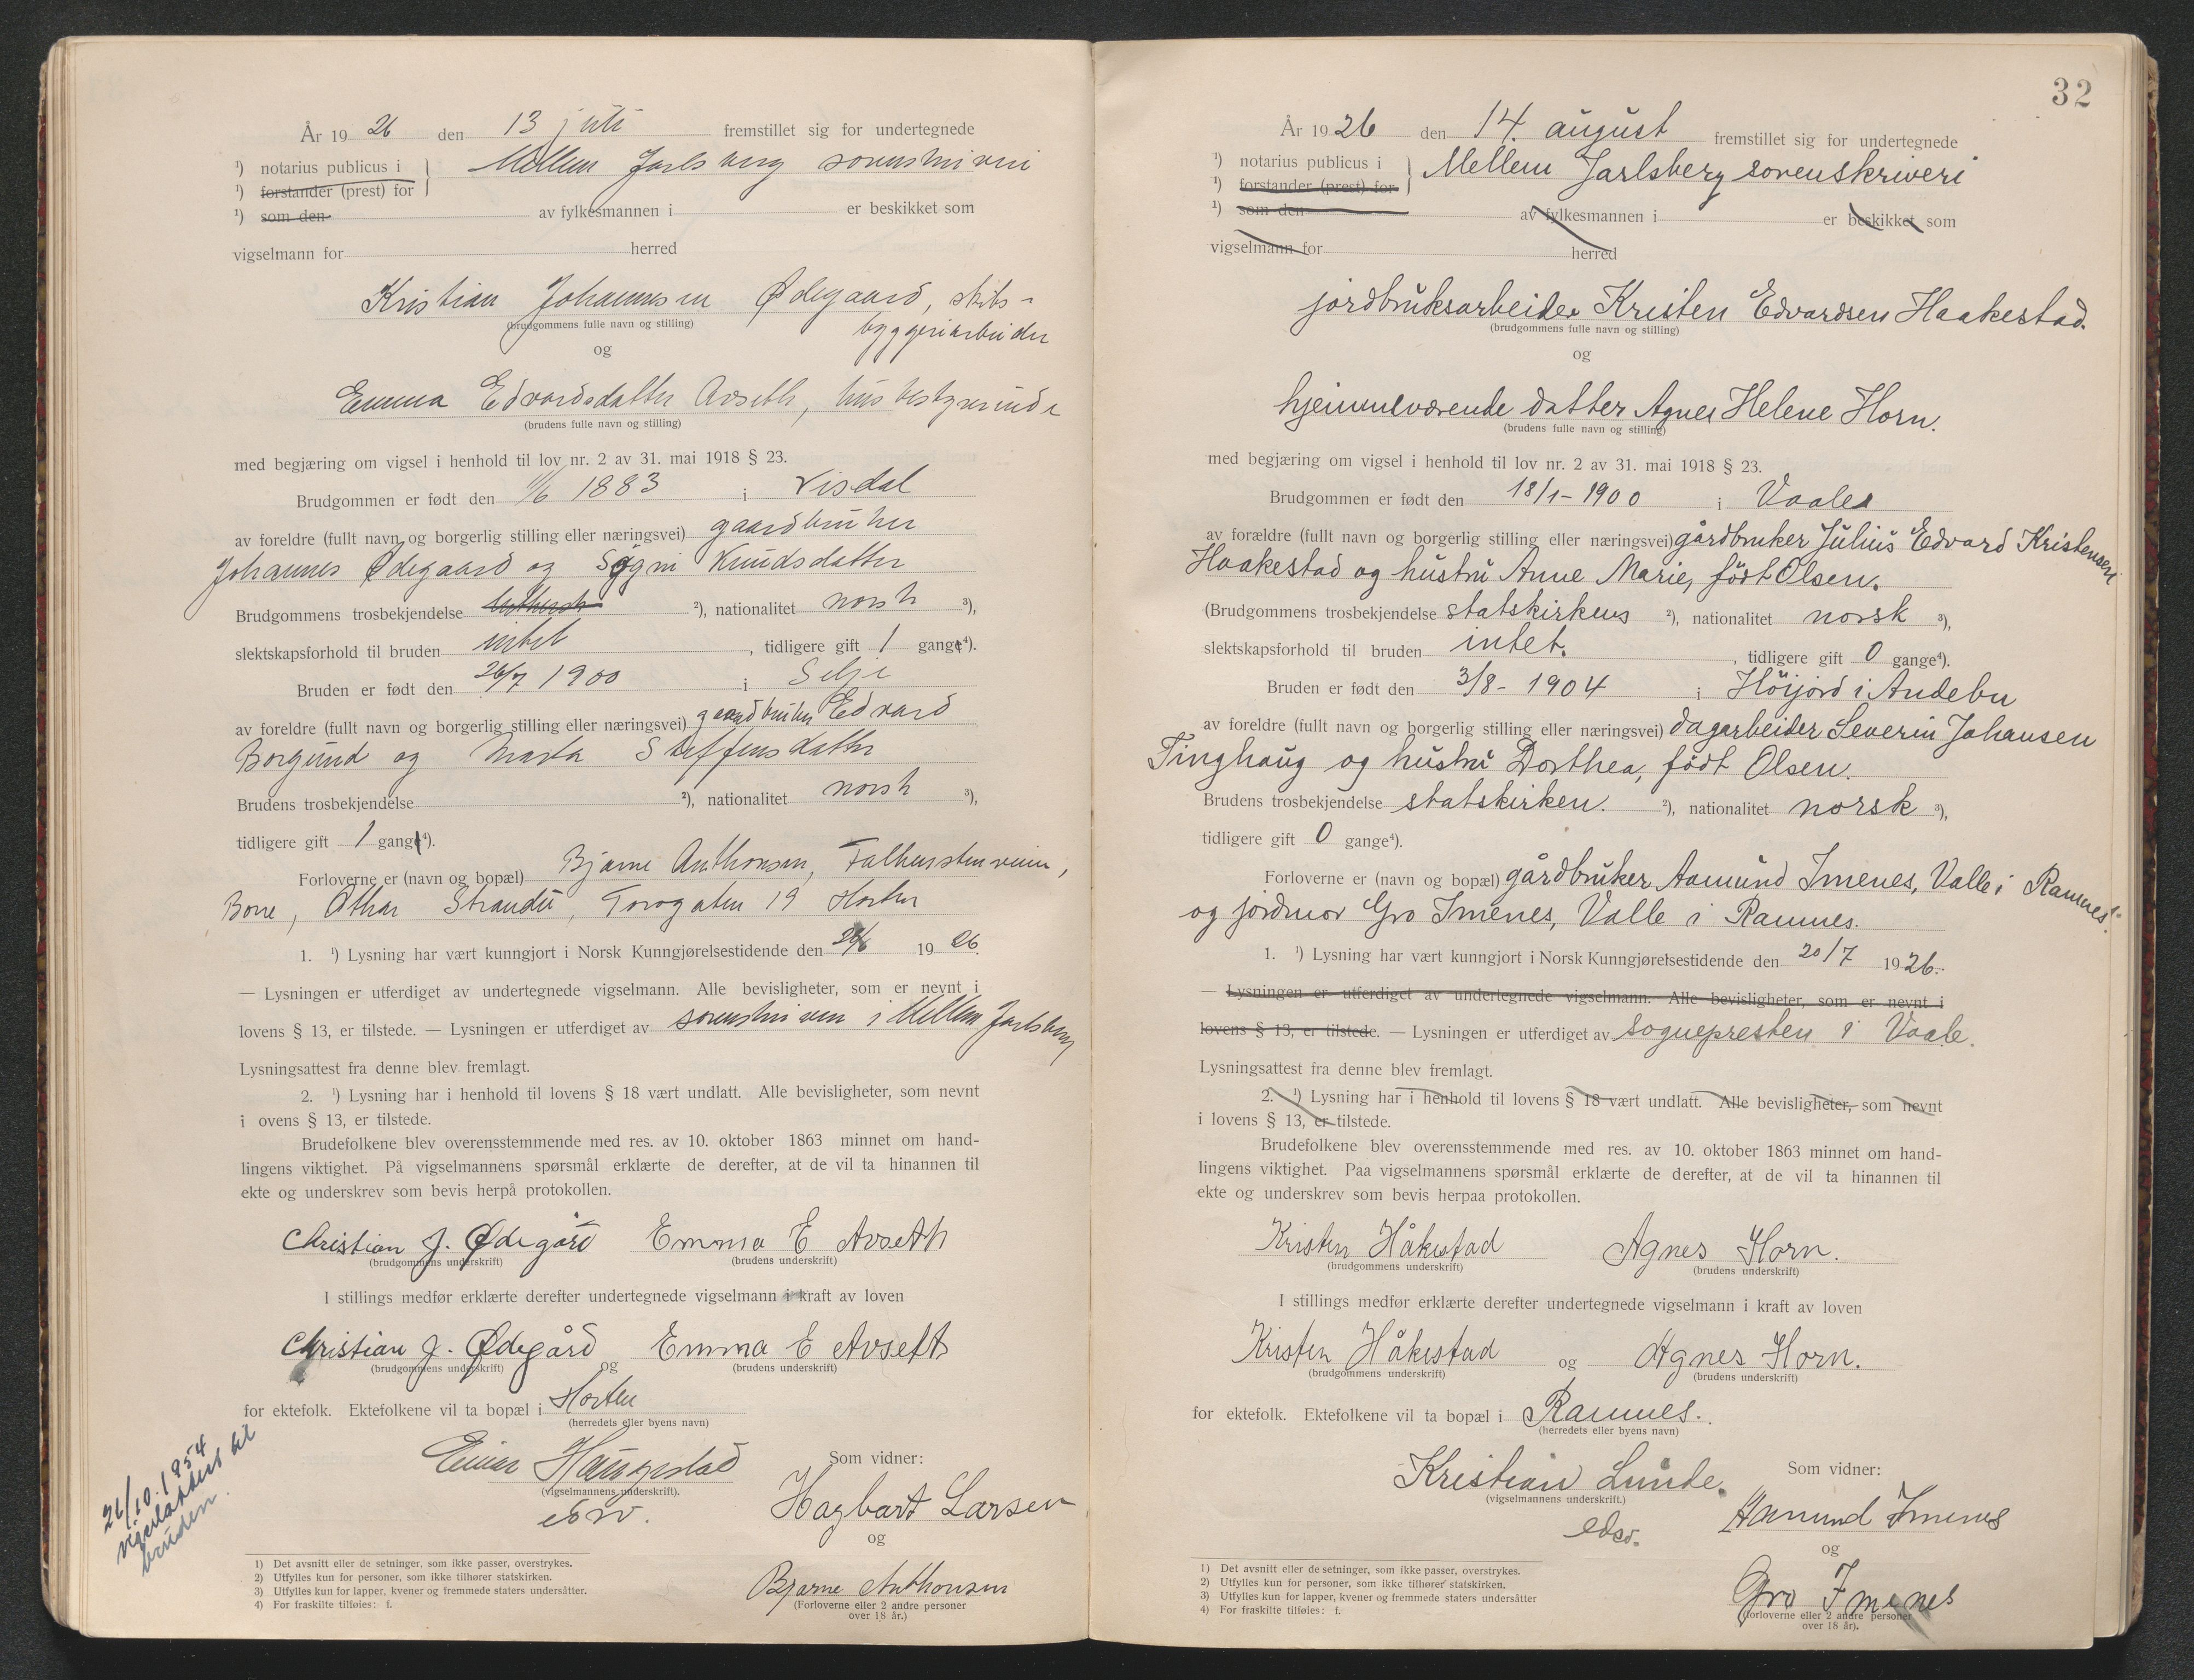 År 1926 den 13 juli fremstillet sig for undertegnede
¹) notarius publicus i } Mellem Jarlsberg sorenskriveri
¹) forstander (prest) for
¹) som den av fylkesmannen i er beskikket som
vigselmann for herred
Kristian Johannesen Ødegaard, skibs-
(brudgommens fulle navn og stilling)
byggeriarbeider
og
Emma Edvardsdatter Avseth, husbestyrerinde
(brudens fulle navn og stilling)
med begjæring om vigsel i henhold til lov nr. 2 av 31. mai 1918 § 23.
Brudgommen er født den 11/6 1883 i Visdal
av foreldre (fullt navn og borgerlig stilling eller næringsvei) gaardbruker
Johannes Ødegaard og Søgni Knudsdatter
Brudgommens trosbekjendelse ²), nationalitet norsk ³),
slektskapsforhold til bruden intet, tidligere gift 1 gang⁴).
Bruden er født den 26/7 1900 i Selje
av foreldre (fullt navn og borgerlig stilling eller næringsvei) gaardbruker Edvard
Borgund og Marta Steffensdatter
Brudens trosbekjendelse ²), nationalitet norsk ³),
tidligere gift 1 gang⁴).
Forloverne er (navn og bopæl) Bjarne Anthonsen, Falkenstenveien,
Borre, Othar Strande, Torvgaten 19 Horten
1. ¹) Lysning har vært kunngjort i Norsk Kunngjørelsestidende den 26/6 1926.
— Lysningen er utferdiget av undertegnede vigselmann. Alle bevisligheter, som er nevnt i
lovens § 13, er tilstede. — Lysningen er utferdiget av sorenskriveren i Mellem Jarlsberg
Lysningsattest fra denne blev fremlagt.
2. ¹) Lysning har i henhold til lovens § 18 vært undlatt. Alle bevisligheter, som nevnt
i ovens § 13, er tilstede.
Brudefolkene blev overensstemmende med res. av 10. oktober 1863 minnet om hand-
lingens viktighet. På vigselmannens spørsmål erklærte de derefter, at de vil ta hinannen til
ekte og underskrev som bevis herpå protokollen.
Christian J. Ødegård Emma E Avseth
(brudgommens underskrift) (brudens underskrift)
I stillings medfør erklærte derefter undertegnede vigselmann i kraft av loven
Christian J. Ødegård og Emma E Avseth
(brudgommens underskrift) (brudens underskrift)
for ektefolk. Ektefolkene vil ta bopæl i Horten
(herredets eller byens navn)
Einar Haugestad Som vidner:
(vigselmannens underskrift).
Hagbart Larsen
og
Bjarne Anthonsen
(Forloverne eller 2 andre personer
over 18 år.)
26/10.1954
vigselattest til
bruden.
1) Det avsnitt eller de setninger, som ikke passer, overstrykes.
2) Utfylles kun for personer, som ikke tilhører statskirken.
3) Utfylles kun for lapper, kvener og fremmede staters undersåtter.
4) For fraskilte tilføies: f.
32
År 1926 den 14. august fremstillet sig for undertegnede
¹) notarius publicus i } Mellem Jarlsberg sorenskriveri
¹) forstander (prest) for
¹) som den av fylkesmannen i er beskikket som
vigselmann for herred
jordbruksarbeider Kristen Edvardsen Haakestad.
(brudgommens fulle navn og stilling)
og
hjemmeværende datter Agnes Helene Horn.
(brudens fulle navn og stilling)
med begjæring om vigsel i henhold til lov nr. 2 av 31. mai 1918 § 23.
Brudgommen er født den 18/1-1900 i Vaale
av forældre (fullt navn og borgerlig stilling eller næringsvei) gårdbruker Julius Edvard Kristensen
Haakestad og hustru Anne Marie, født Olsen.
(Brudgommens trosbekjendelse statskirkens ²), nationalitet norsk ³),
slektskapsforhold til bruden intet., tidligere gift 0 gange⁴).
Bruden er født den 3/8-1904 i Höijord i Andebu
av foreldre (fullt navn og borgerlig stilling eller næringsvei) dagarbeider Severin Johansen
Tinghaug og hustru Dorthea, födt Olsen.
Brudens trosbekjendelse statskirken. ²), nationalitet norsk ³),
tidligere gift 0 gange⁴).
Forloverne er (navn og bopæl) gårdbruker Aamund Imenes, Valle i Ramnes
og jordmor Gro Imenes, Valle i Ramnes.
1. ¹) Lysning har vært kunngjort i Norsk Kunngjørelsestidende den 20/7 1926.
— Lysningen er utferdiget av undertegnede vigselmann. Alle bevisligheter, som er nevnt i
lovens § 13, er tilstede. — Lysningen er utferdiget av sognepresten i Vaale.
Lysningsattest fra denne blev fremlagt.
2. ¹) Lysning har i henhold til lovens § 18 vært undlatt. Alle bevisligheter, som nevnt
i lovens § 13, er tilstede.
Brudefolkene blev overensstemmende med res. av 10. oktober 1863 minnet om hand-
lingens viktighet. Paa vigselmannens spørsmål erklærte de derefter, at de vil ta hinannen til
ekte og underskrev som bevis herpaa protokollen.
Kristen Håkestad Agnes Horn.
(brudgommens underskrift) (brudens underskrift)
I stillings medfør erklærte derefter undertegnede vigselmann i kraft av loven
Kristen Håkestad og Agnes Horn.
(brudgommens underskrift) (brudens underskrift)
for ektefolk. Ektefolkene vil ta bopæl i Ramnes.
(herredets eller byens navn)
Kristian Lunde. Som vidner:
(vigselmannens underskrift.)
edsv. Aamund Imenes
og
Gro Imenes
(forloverne eller 2 andre personer
over 18 år).
1) Det avsnitt eller de setninger, som ikke passer, overstrykes.
2) Utfylles kun for personer, som ikke tilhører statskirken.
3) Utfylles kun for lapper, kvener og fremmede staters undersåtter
4) For fraskilte tilføies: f.